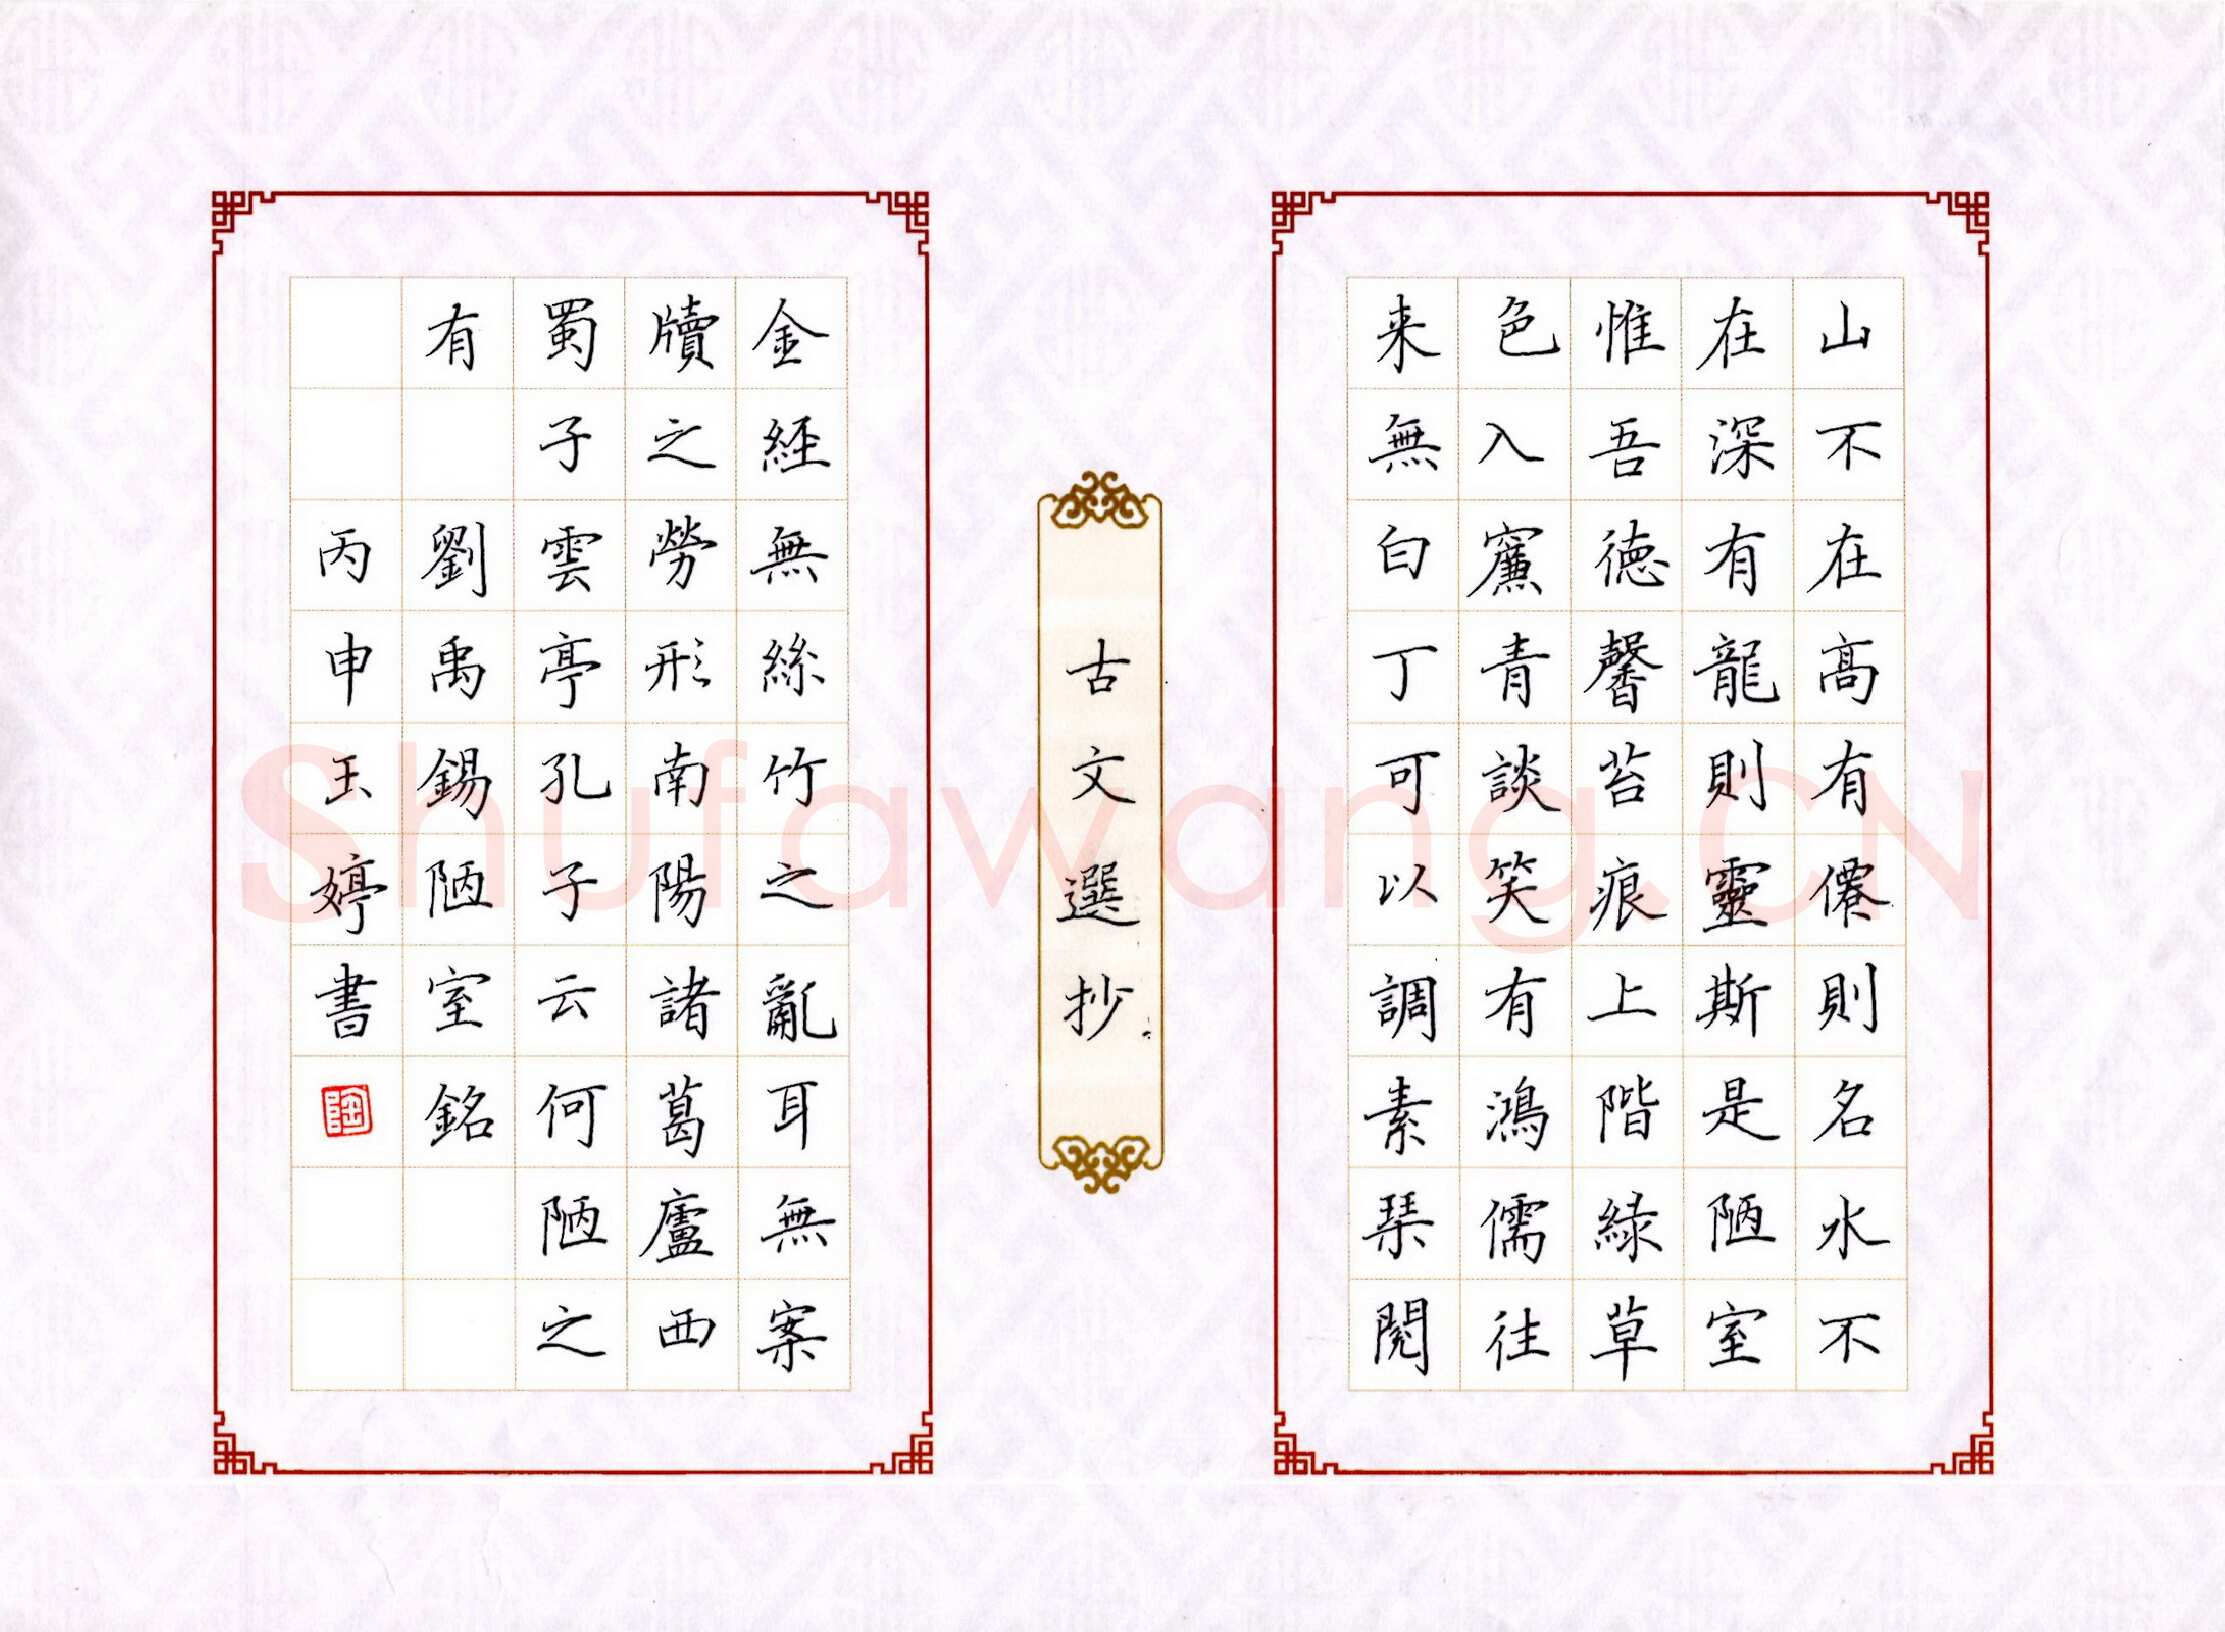 山不在高有僊則名水不
在深有龍則靈斯是陋室
惟吾德馨苔痕上階緑草
色入簾青談笑有鴻儒往
来無白丁可以調素琴閱
古文選抄
金經無絲竹之亂耳無案
牘之勞形南陽諸葛廬西
蜀子雲亭孔子云何陋之
有
劉禹錫陋室銘
丙申玉婷書
Shufawang.CN